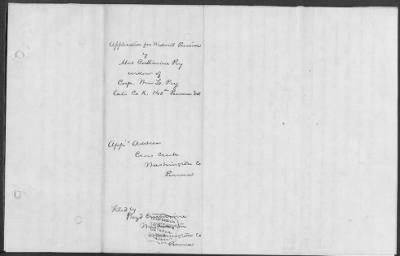 Application for Widows Pension
of
Mrs Catharine Pry
widow of
Corp. Wm L. Pry
late Co K. 140th Penna Vol
App's Address
Cross Creek
Washington Co
Penna
Filed by
Washington Co
Penna